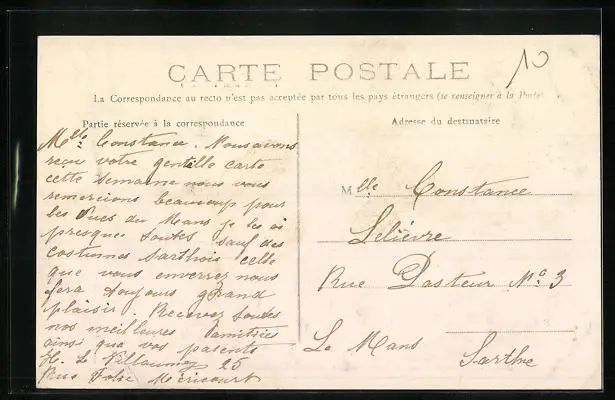 10
CARTE POSTALE
La Correspondance au recto n'est pas acceptée par tous les pays étrangers (se renseigner à la Poste)
Partie réservée à la correspondance
Adresse du destinataire
Mlle Constance. Nous avons
reçu votre gentille carte
cette semaine nous vous
remercions beaucoup pour
les vues du Mans je les ai
presques toutes sauf des
costumes Sarthois celle
que vous enverrez nous
fera toujours grand
plaisir. Recevez toutes
nos meilleures amitiées
ainsi que vos parents
H. Le 25
Rue Méricourt
Mlle Constance
Lelièvre
Rue Pasteur No 3
Le Mans
Sarthe